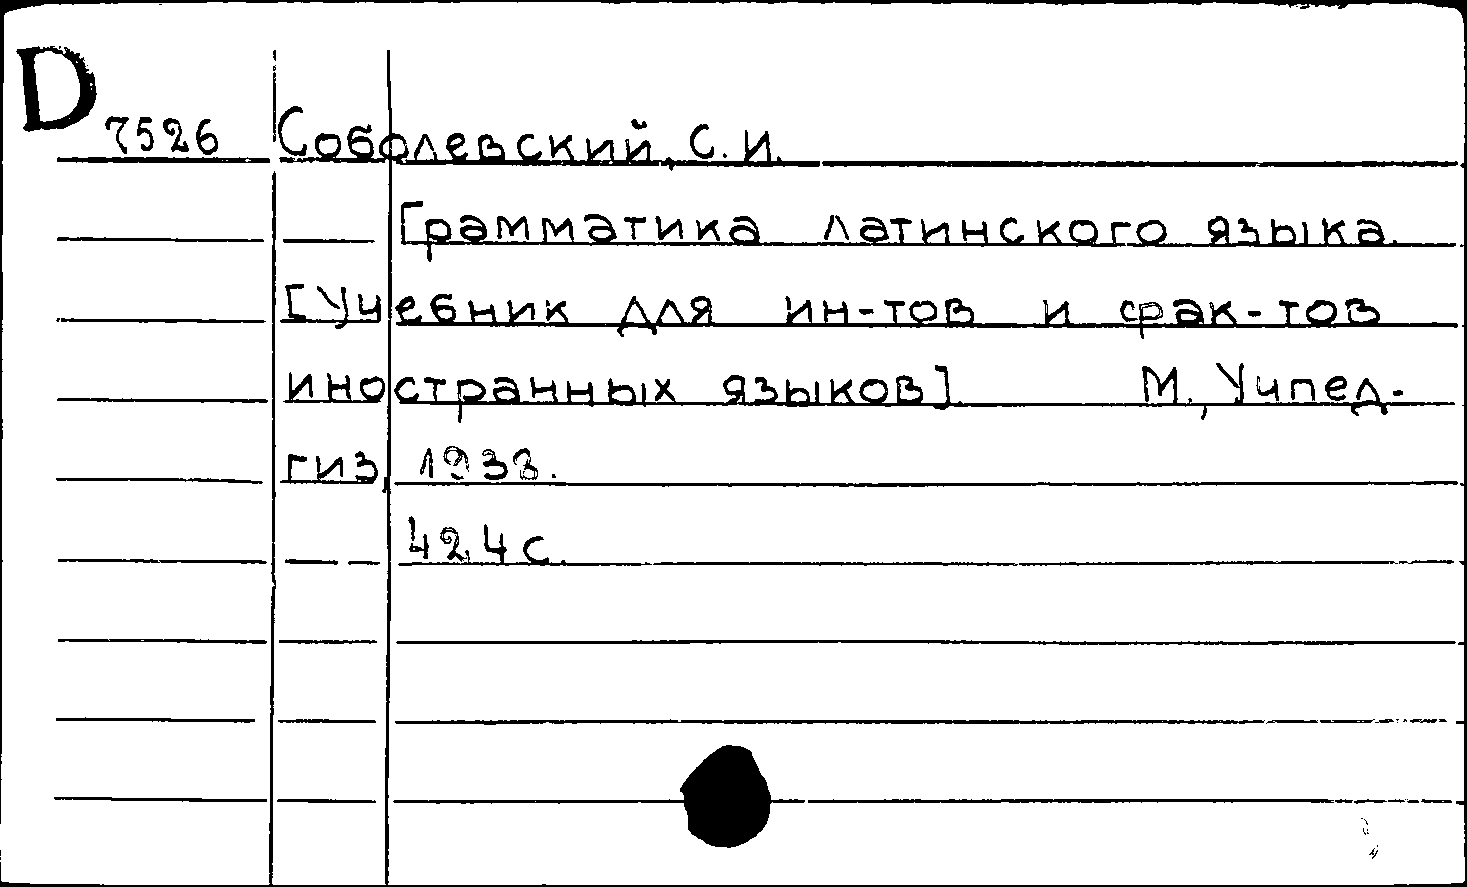 D 7526 Соболевский, С. И.
Грамматика латинского языка.
[Учебник для ин-тов и фак-тов
иностранных языков] М., Учпед-
гиз, 1938.
424 с.